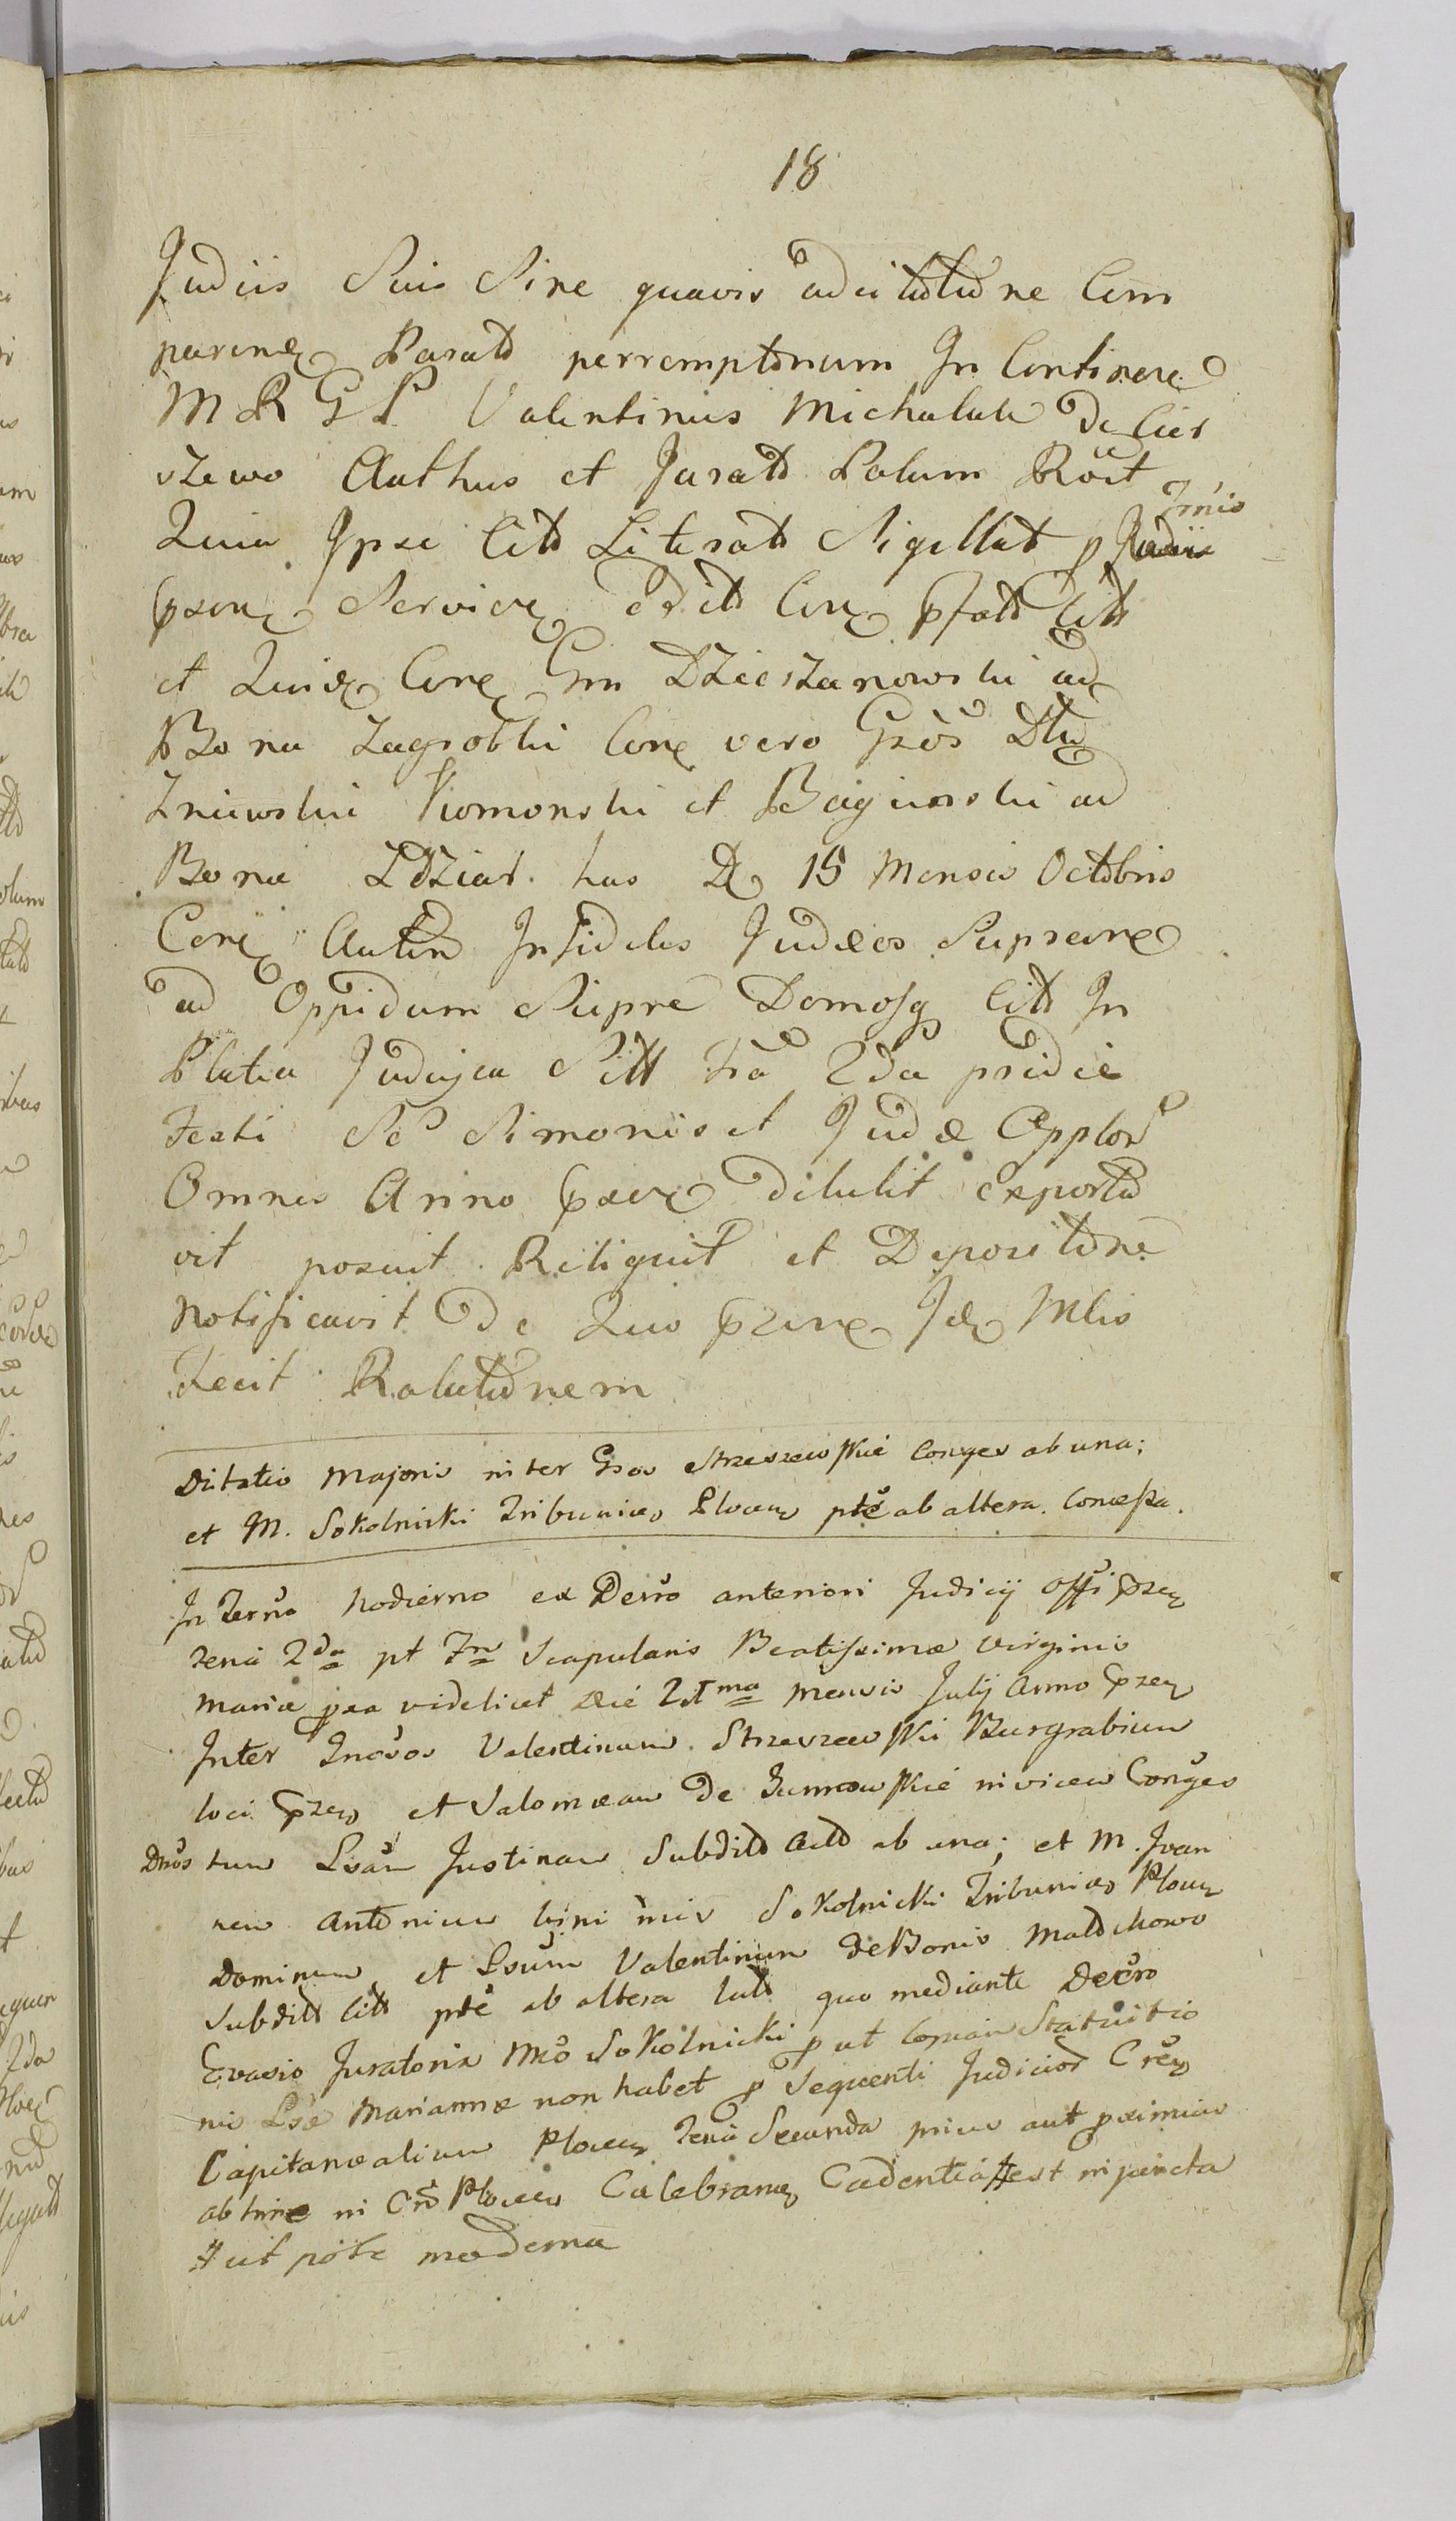 18
Judiis Suis Sine quavis aditatione Com
paren Parato perremptorium In Continere
M R G P Valentinus Michalak de Cier
szewo Authus et Jurats Palam Root
Quia Ipse Cito Literato Sigillat p Judiis Tmis
psen Service edito Con psato Cito
et Quid Con Gm Dzierzanowski ad
Bona Zagrobki Con vero Gsos Dto
Zniewski Piomonski et Bagienski ad
Bona Zdziar has D 15 Mensis Octobris
Con Autem Infideles Judeos Siepren
ad Oppidum Sieprc Domosq Cito In
Platea Judajca Sitt fra 2da pridie
Festi Sc Simonis et Judæ Applor
Omnes Anno psen detulit exporta
vit posuit Reliquit et Depositone
Notificavit De Quo psens Id Mlis
Fecit Relatonem
Ditatio Majoris inter Gsos Strzeszewskie Conges ab una;
et M. Sokolnicki Tribunice Plocen pte ab altera Concessa.
In Termo hodierno ex Decro anteriori Judicij Offi psen
feria 2da pt Fm Scapularis Beatissimæ Virginis
Mariæ pxa videlicet die 21ma Mensis Julij Anno psen
Inter Gnosos Valentinum Strzeszewski Burgrabium
loci psen et Salomeam De Zunnowskie invicem Conges
Dnos tum Lsam Justinam Subdito Acto ab una; et M. Joan
nem Antonium bini nis Sokolnicki Tribunice Plocen
Dominum et Lsum Valentinum de Bonis Malochowo
Subdito Cito pte ab altera lato quo mediante Decro
Evasio Juratoria Mco Sokolnicki p ut Copiam Statuitio
nis Lsæ Mariannæ non habet p Sequenti Judicior Cren
Capitanealium Plocen feria Secunda primo aut pximius
ab hinc in Cro Plocen Celebran Cadentia # est injuncta
# ut pote moderna